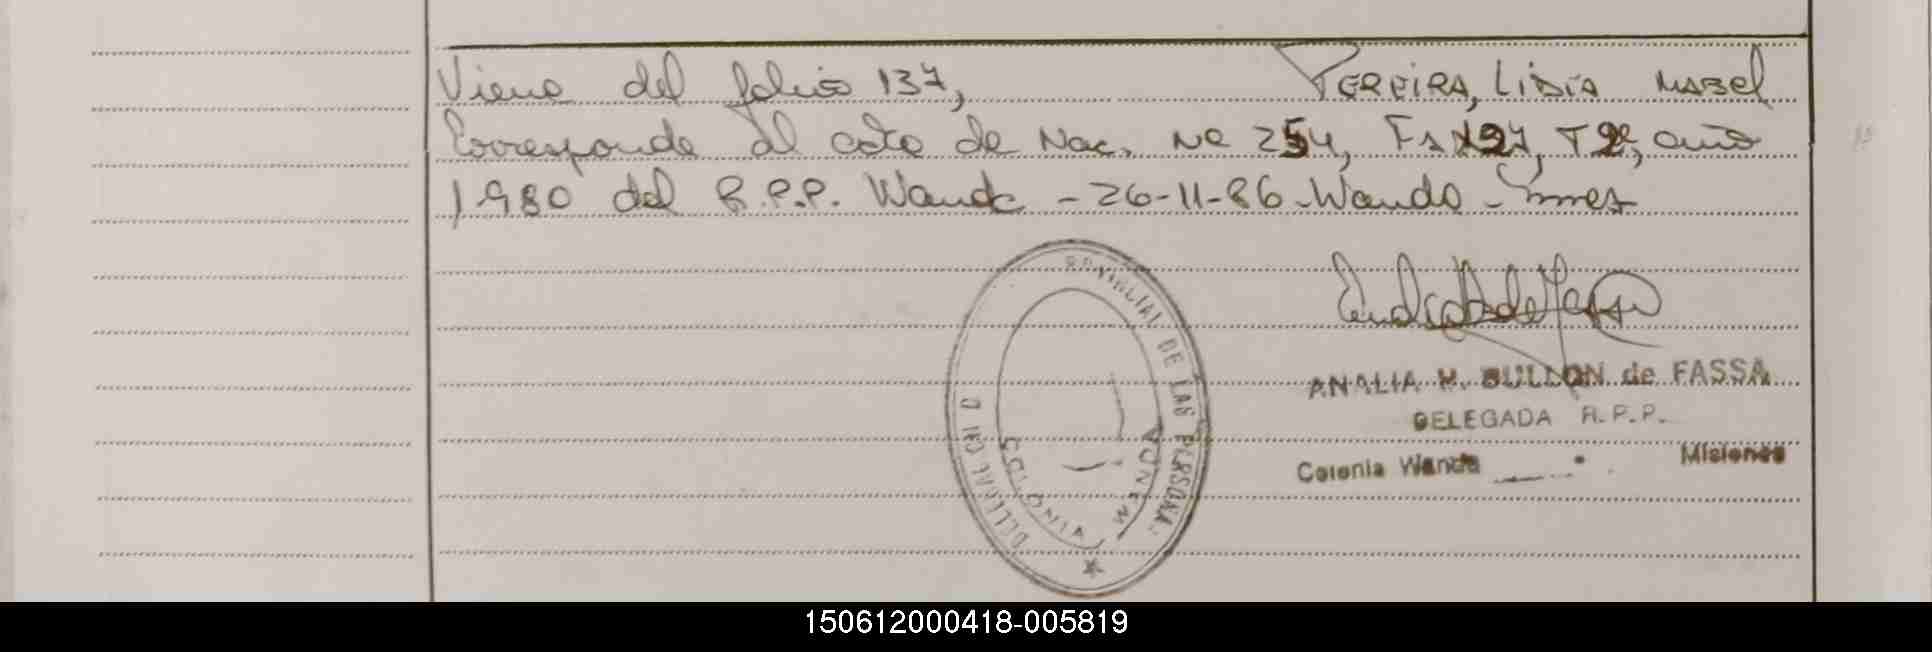 Viene del folio 137, PEREIRA, LIDIA MABEL
Corresponde al acta de Nac. Nº 254, Fº 127, T 2º, año
1.980 del R.P.P. Wanda - 26-11-86 - Wanda - Mnes
PROVINCIAL DE LAS PERSONAS
DELEGACION
COLONIA WANDA
ANALIA M. BULLON de FASSA
DELEGADA R.P.P.
Colonia Wanda Misiones
150612000418-005819